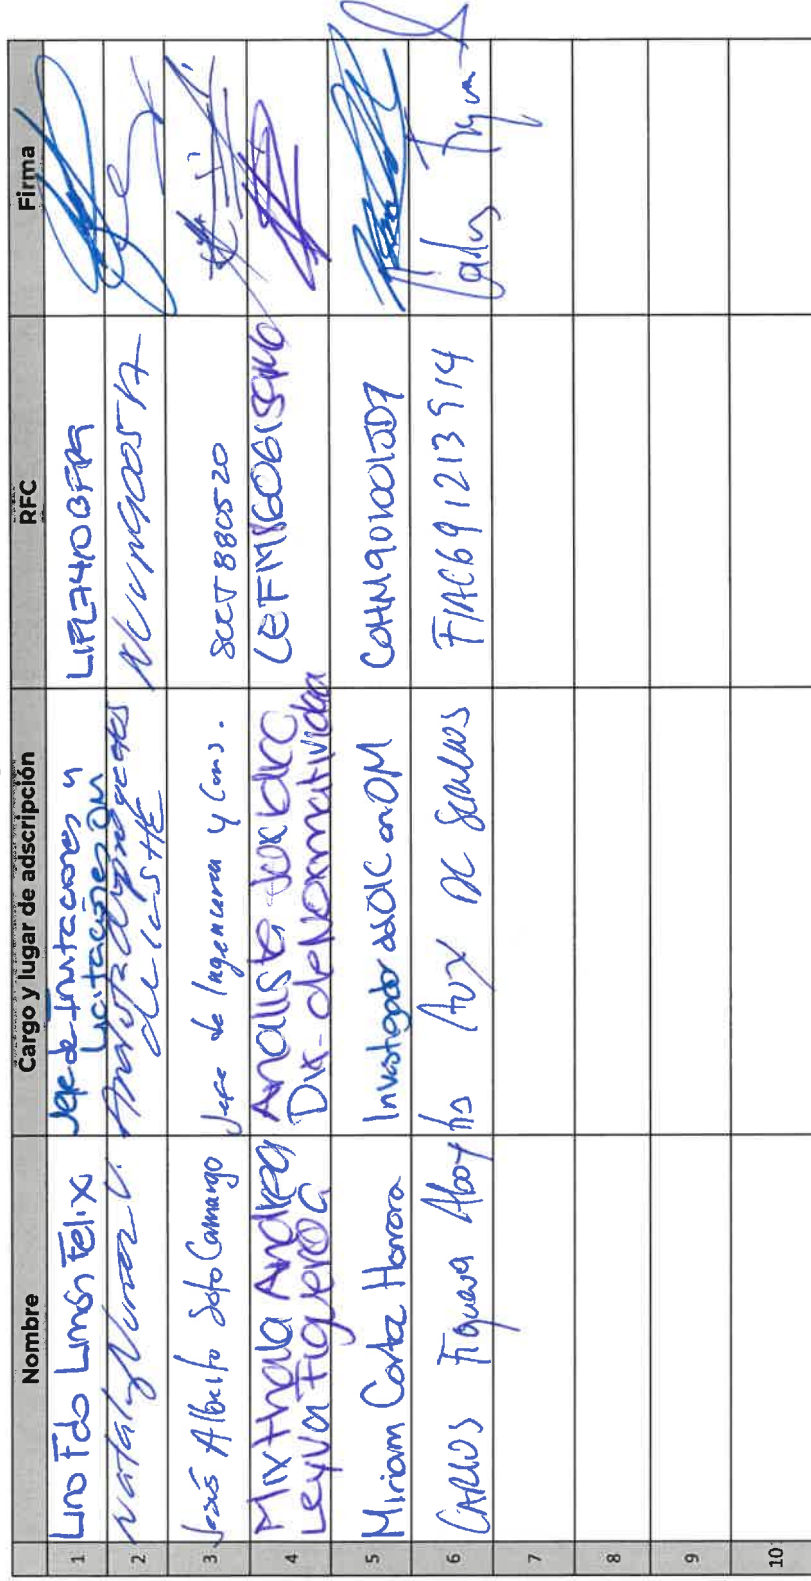 Nombre Cargo y lugar de adscripción RFC Firma
1 Lino Fdo Limón Felix Jefe de Invitaciones y Licitaciones OM LIFL741013FP9
2 Nataly Nunez V. Analista de la SHE
3 Jesús Alberto Soto Camargo Jefe de Ingenieria y Cons. SOCJ880520
4 Mixthala Andrea Leyva Figueroa Analista Juridico Dir. de Normatividad
5 Miriam Corta Herrera Investigador del OIC en OM COHM901001JD7
6 CARLOS Figueroa Aux DE Servicios FIAC691213 Carlos
7
8
9
10